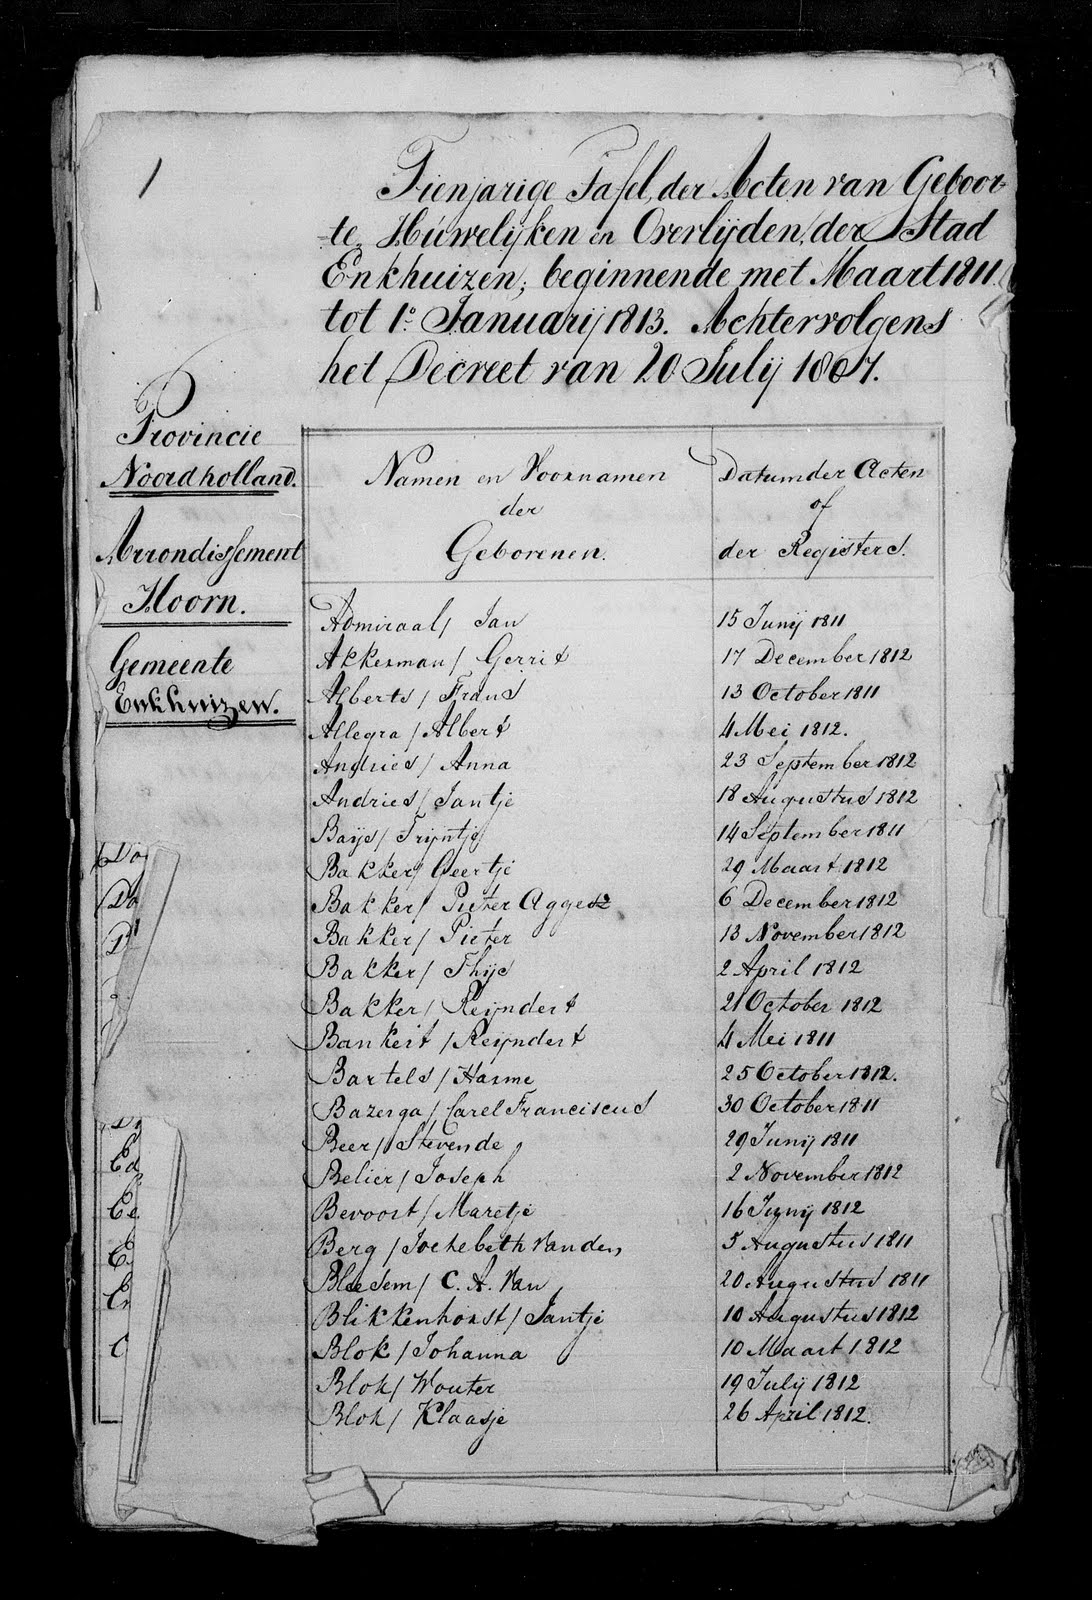 1
Tienjarige Tafel, der Acten van Geboor-
te, Húwelijken en Overlijden, der Stad
Enkhuizen, beginnende met Maart 1811.
tot 1.o Januarij 1813. Achtervolgens
het Decreet van 20 Julij 1807.
Provincie
Noordholland.
Arrondissement
Hoorn.
Gemeente
Enkhuizen.
Namen en Voornamen
der
Geborenen.
Datum der Acten
of
der Registers.
Admiraal / Jan 15 Junij 1811
Akkerman / Gerrit 17 December 1812
Alberts / Frans 13 October 1811
Allegra / Albert 4 Mei 1812.
Andries / Anna 23 September 1812
Andries / Jantje 18 Augustus 1812
Baijs / Trijntje 14 September 1811
Bakker / Geertje 29 Maart 1812
Bakker / Pieter Aggesz 6 December 1812
Bakker / Pieter 13 November 1812
Bakker / Thijs 2 April 1812
Bakker / Reijndert 21 October 1812
Bankert / Reijndert 4 Mei 1811
Bartels / Harme 25 October 1812.
Bazerga / Carel Franciscus 30 October 1811
Beer / Stevende 29 Junij 1811
Belier / Joseph 2 November 1812
Bevoost / Maretje 16 Junij 1812
Berg / Jochebeth Vanden 5 Augustus 1811
Bleesem / C. A. Van 20 Augustus 1811
Blikkenhorst / Jantje 10 Augustus 1812
Blok / Johanna 10 Maart 1812
Blok / Wouter 19 Julij 1812
Blok / Klaasje 26 April 1812.